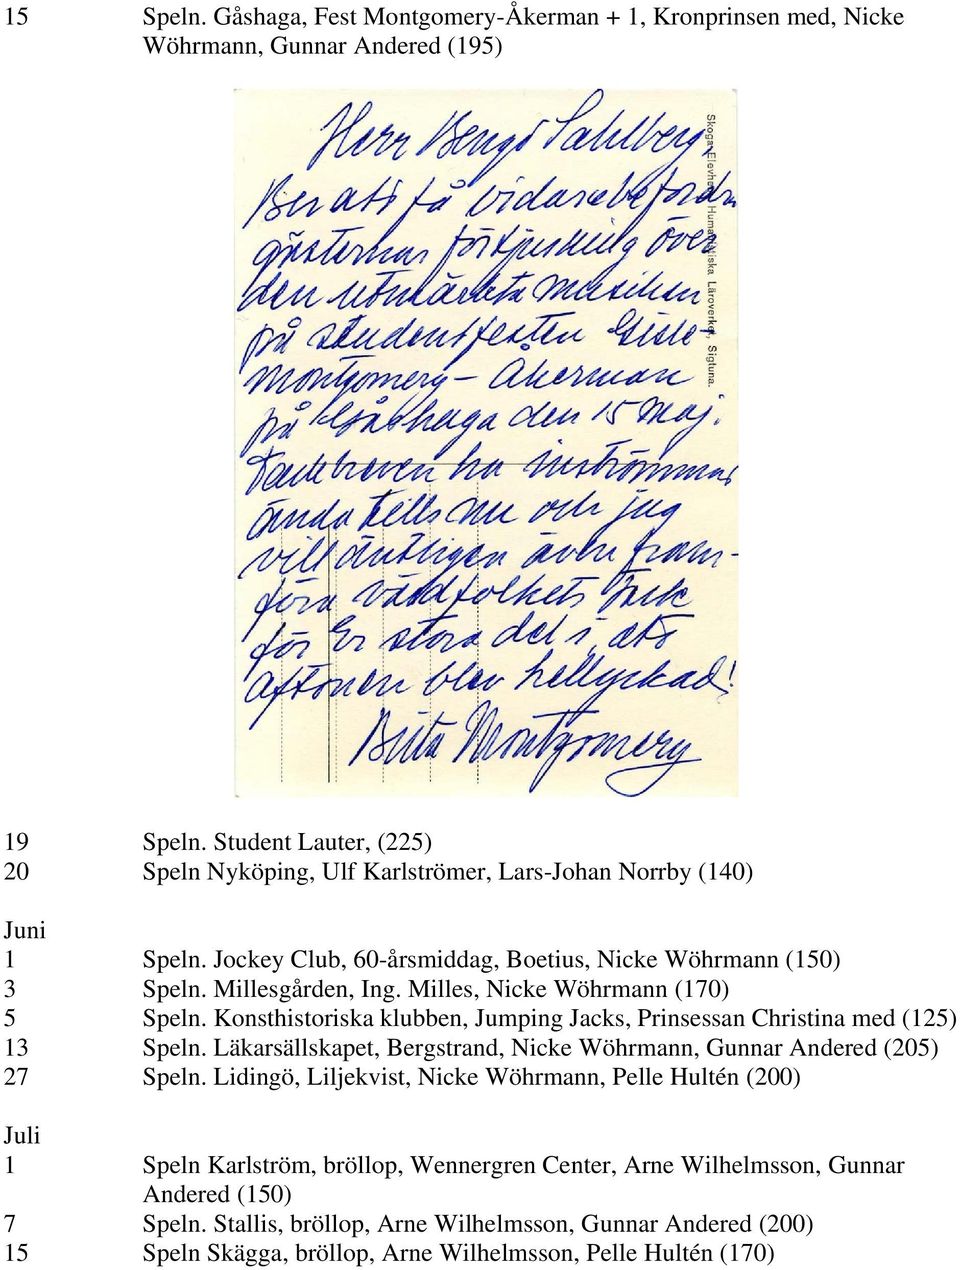 15 Speln. Gåshaga, Fest Montgomery-Åkerman + 1, Kronprinsen med, Nicke
Wöhrmann, Gunnar Andered (195)
Herr Bengt Sahlberg,
Ber att få vidarebefordra
gästernas förtjusning över
den utmärkta musiken
på studentfesten
Montgomery – Åkerman
på Gåshaga den 15 maj.
Tackbreven ha inströmmat
ända tills nu och jag
vill äntligen även fram-
föra värdfolkets tack
för Er stora del i att
aftonen blev hellyckad!
Brita Montgomery
Skoga Elevhem, Humanistiska Läroverket, Sigtuna.
19 Speln. Student Lauter, (225)
20 Speln Nyköping, Ulf Karlströmer, Lars-Johan Norrby (140)
Juni
1 Speln. Jockey Club, 60-årsmiddag, Boetius, Nicke Wöhrmann (150)
3 Speln. Millesgården, Ing. Milles, Nicke Wöhrmann (170)
5 Speln. Konsthistoriska klubben, Jumping Jacks, Prinsessan Christina med (125)
13 Speln. Läkarsällskapet, Bergstrand, Nicke Wöhrmann, Gunnar Andered (205)
27 Speln. Lidingö, Liljekvist, Nicke Wöhrmann, Pelle Hultén (200)
Juli
1 Speln Karlström, bröllop, Wennergren Center, Arne Wilhelmsson, Gunnar
Andered (150)
7 Speln. Stallis, bröllop, Arne Wilhelmsson, Gunnar Andered (200)
15 Speln Skägga, bröllop, Arne Wilhelmsson, Pelle Hultén (170)